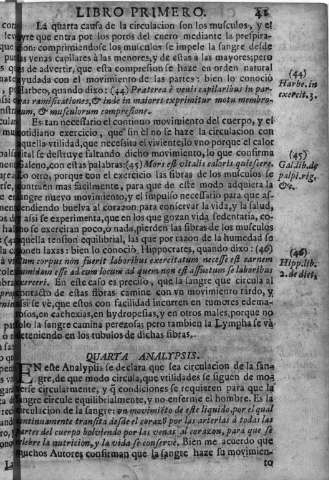 LIBRO PRIMERO. 41
La quarta causa de la circulacion son los musculos, y el
que entra por los poros del cuero mediante la prespira-
cion comprimiendose los musculos se impele la sangre desde
las venas capilares à las menores, y de estas à las mayores, pero
es de advertir, que esta compresion se haze en orden natural
ayudada con el movimiento de las partes: bien lo conociò
Harbeo, quando dixo: (44) Praterea è venis capilaribus in par-
vas ramificationes, & inde in maiores exprimitur motu membro-
rum, & musculorum compresione.
(44)
Harbe. in
exercit. 3.
Es tan necessario el continuo movimiento del cuerpo, y el
cotidiano exercicio, que sin èl no se haze la circulacion con
aquella vtilidad, que necesita el viviente, lo vno porque el calor
se destruye faltando dicho movimiento, lo que confirma
Galeno, con estas palabras: (45) Mors est vitalis caloris quiescere.
Lo otro, porque con el exercicio las fibras de los musculos se
mas facilmente, para que de este modo adquiera la
sangre nuevo movimiento, y el impulso necessario para que as-
cendiendo buelva al coraçon para conservar la vida, y la salud,
assi se experimenta, que en los que gozan vida sedentaria, co-
mo se exercitan poco, ò nada, pierden las fibras de los musculos
aquella tension equilibrial, las que por razon de la humedad se
ponen laxas: bien lo conociò, Hippocrates, quando dixo: (46)
corpus non fuerit laboribus exercitatum necesse est carnem
humidam esse ad eum locum ad quem non est assuetum se laboribus
exerceri. En este caso es preciso, que la sangre que circula al
contacto de estas fibras camine con vn movimiento tardo, y
assi se vè, que estos con facilidad incurren en tumores edema-
tosos, en cachexias, en hydropesias, y en otros males, porque no
solo la sangre camina perezosa, pero tambien la Lympha se và
deteniendo en los tubulos de dichas fibras.
(45)
Gal. lib. de
palpi. rig.
&c.
(46)
Hipp. lib.
2. de diet.
QUARTA ANALYPSIS.
EN este Analypsis se declara que sea circulacion de la san-
gre, de que modo circula, que vtilidades se siguen de mo-
verse circularmente, y q condiciones se requieren para que la
sangre circule equilibrialmente, y no enferme el hombre. Es la
circulacion de la sangre: vn movimiẽto de este liquido, por el qual
continuamente transita desde el coraçõ por las arterias à todas las
partes del cuerpo bolviendo por las venas al corazon, para que se
celebre la nutricion, y la vida se conserve. Bien me acuerdo que
muchos Autores confirman que la sangre haze su movimien-
to